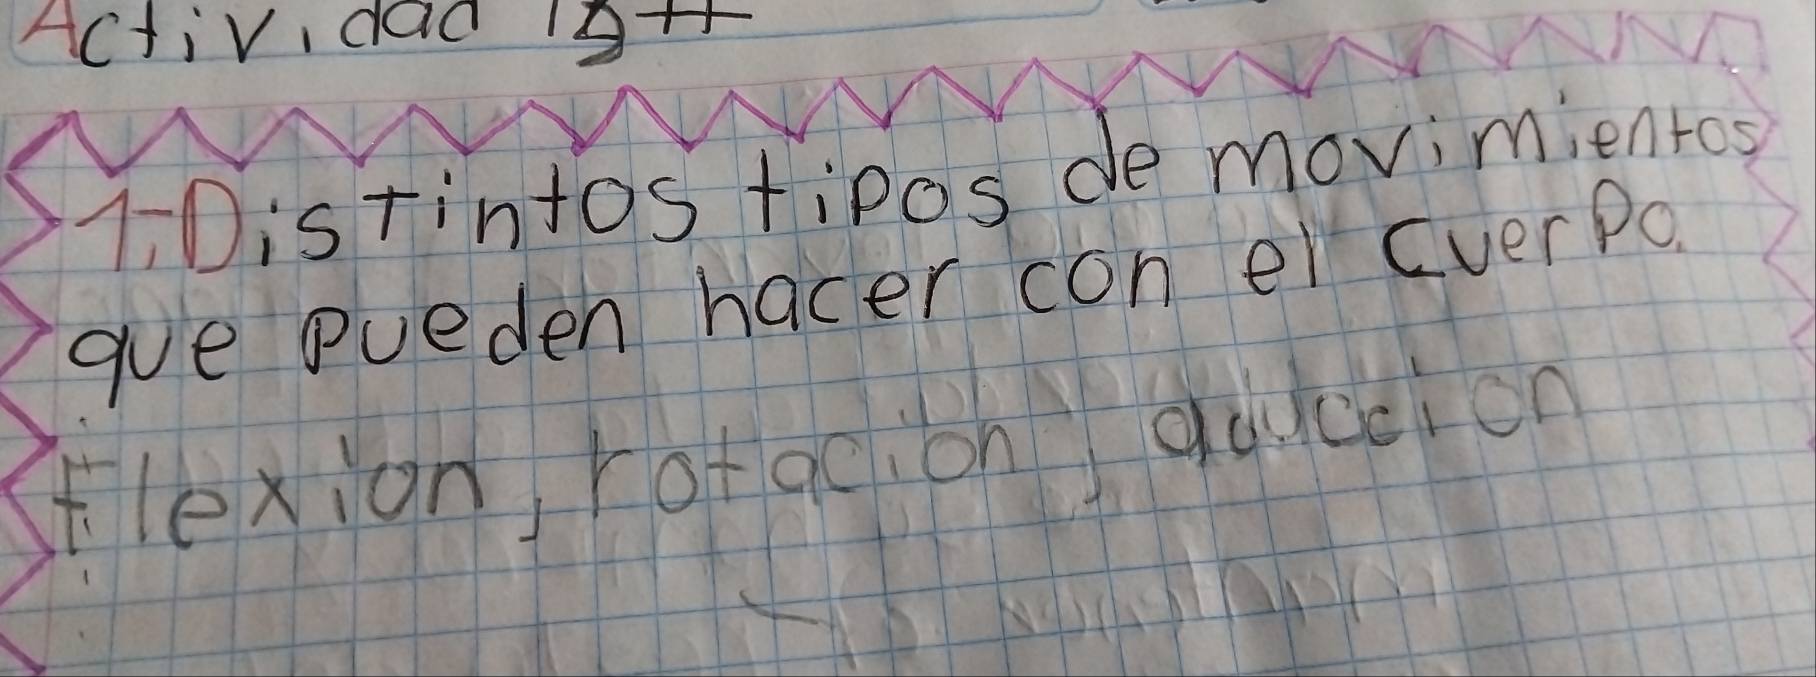 Actividad
1-Distintos tipos de movimientos
que pueden hacer con el cuerpo.
flexion, rotacion, aduccion